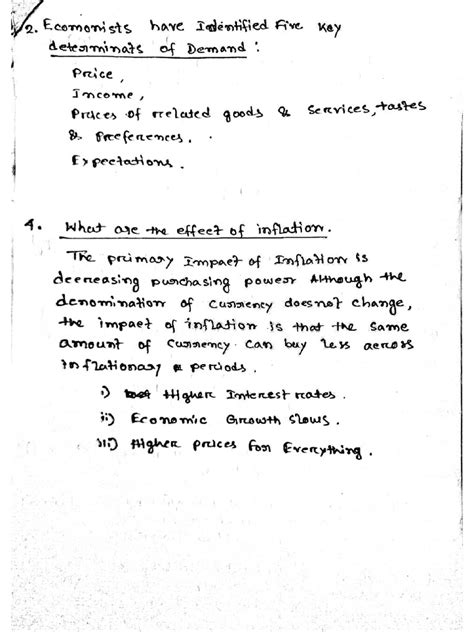 2. Ecomonists have Identified Five Key
determinats of Demand :
Price,
Income,
Prices of related goods & Services, tastes
& Preferences.
Expectations.
4. What are the effect of inflation.
The primary Impact of Inflation is
decreasing purchasing power Although the
denomination of Currency does not change,
the impact of inflation is that the same
amount of Currency Can buy less across
Inflationary periods.
i) Higher Interest rates.
ii) Economic Growth Slows.
iii) Higher prices for Everything.